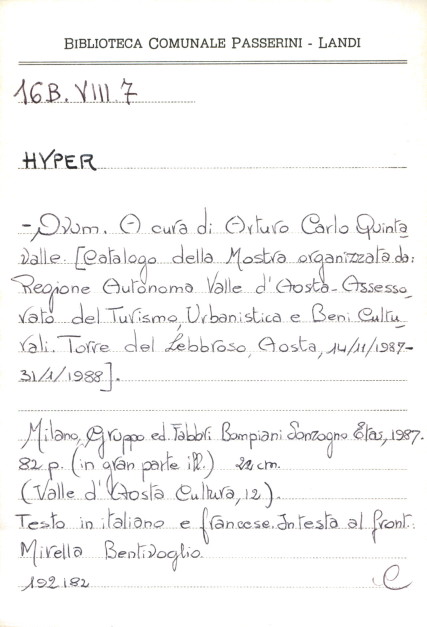 BIBLIOTECA COMUNALE PASSERINI - LANDI
16B. VIII. 7
HYPER
- Ovum. A cura di Arturo Carlo Quinta
valle. [Catalogo della Mostra organizzata da:
Regione Autonoma Valle d'Aosta - Assesso
rato del Turismo, Urbanistica e Beni Cultu
rali. Torre del Lebbroso, Aosta, 14/11/1987-
31/1/1988].
Milano, Gruppo ed. Fabbri Bompiani Sonzogno Etas, 1987.
82 p. (in gran parte ill.) 22 cm.
(Valle d'Aosta Cultura, 12).
Testo in italiano e francese. In testa al front.:
Mirella Bentivoglio.
192182 C